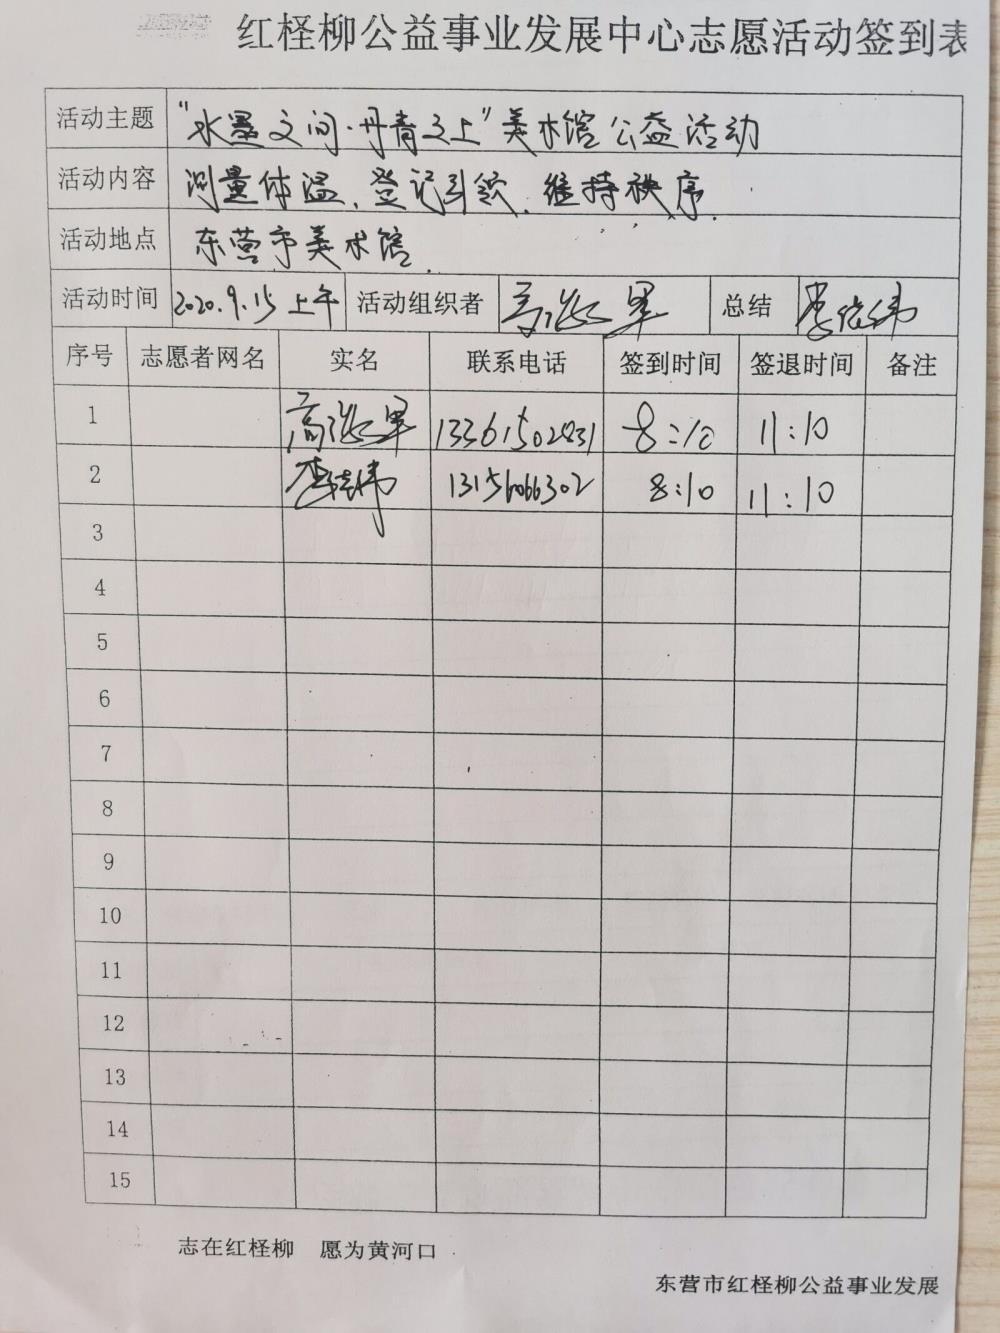 红柽柳公益事业发展中心志愿活动签到表
活动主题 "水墨之间·丹青之上"美术馆公益活动
活动内容 测量体温、登记引领、维持秩序.
活动地点 东营市美术馆.
活动时间 2020.9.15 上午 活动组织者 总结
序号 志愿者网名 实名 联系电话 签到时间 签退时间 备注
1 8:10 11:10
2 13156066302 8:10 11:10
3
4
5
6
7
8
9
10
11
12
13
14
15
志在红柽柳 愿为黄河口
东营市红柽柳公益事业发展